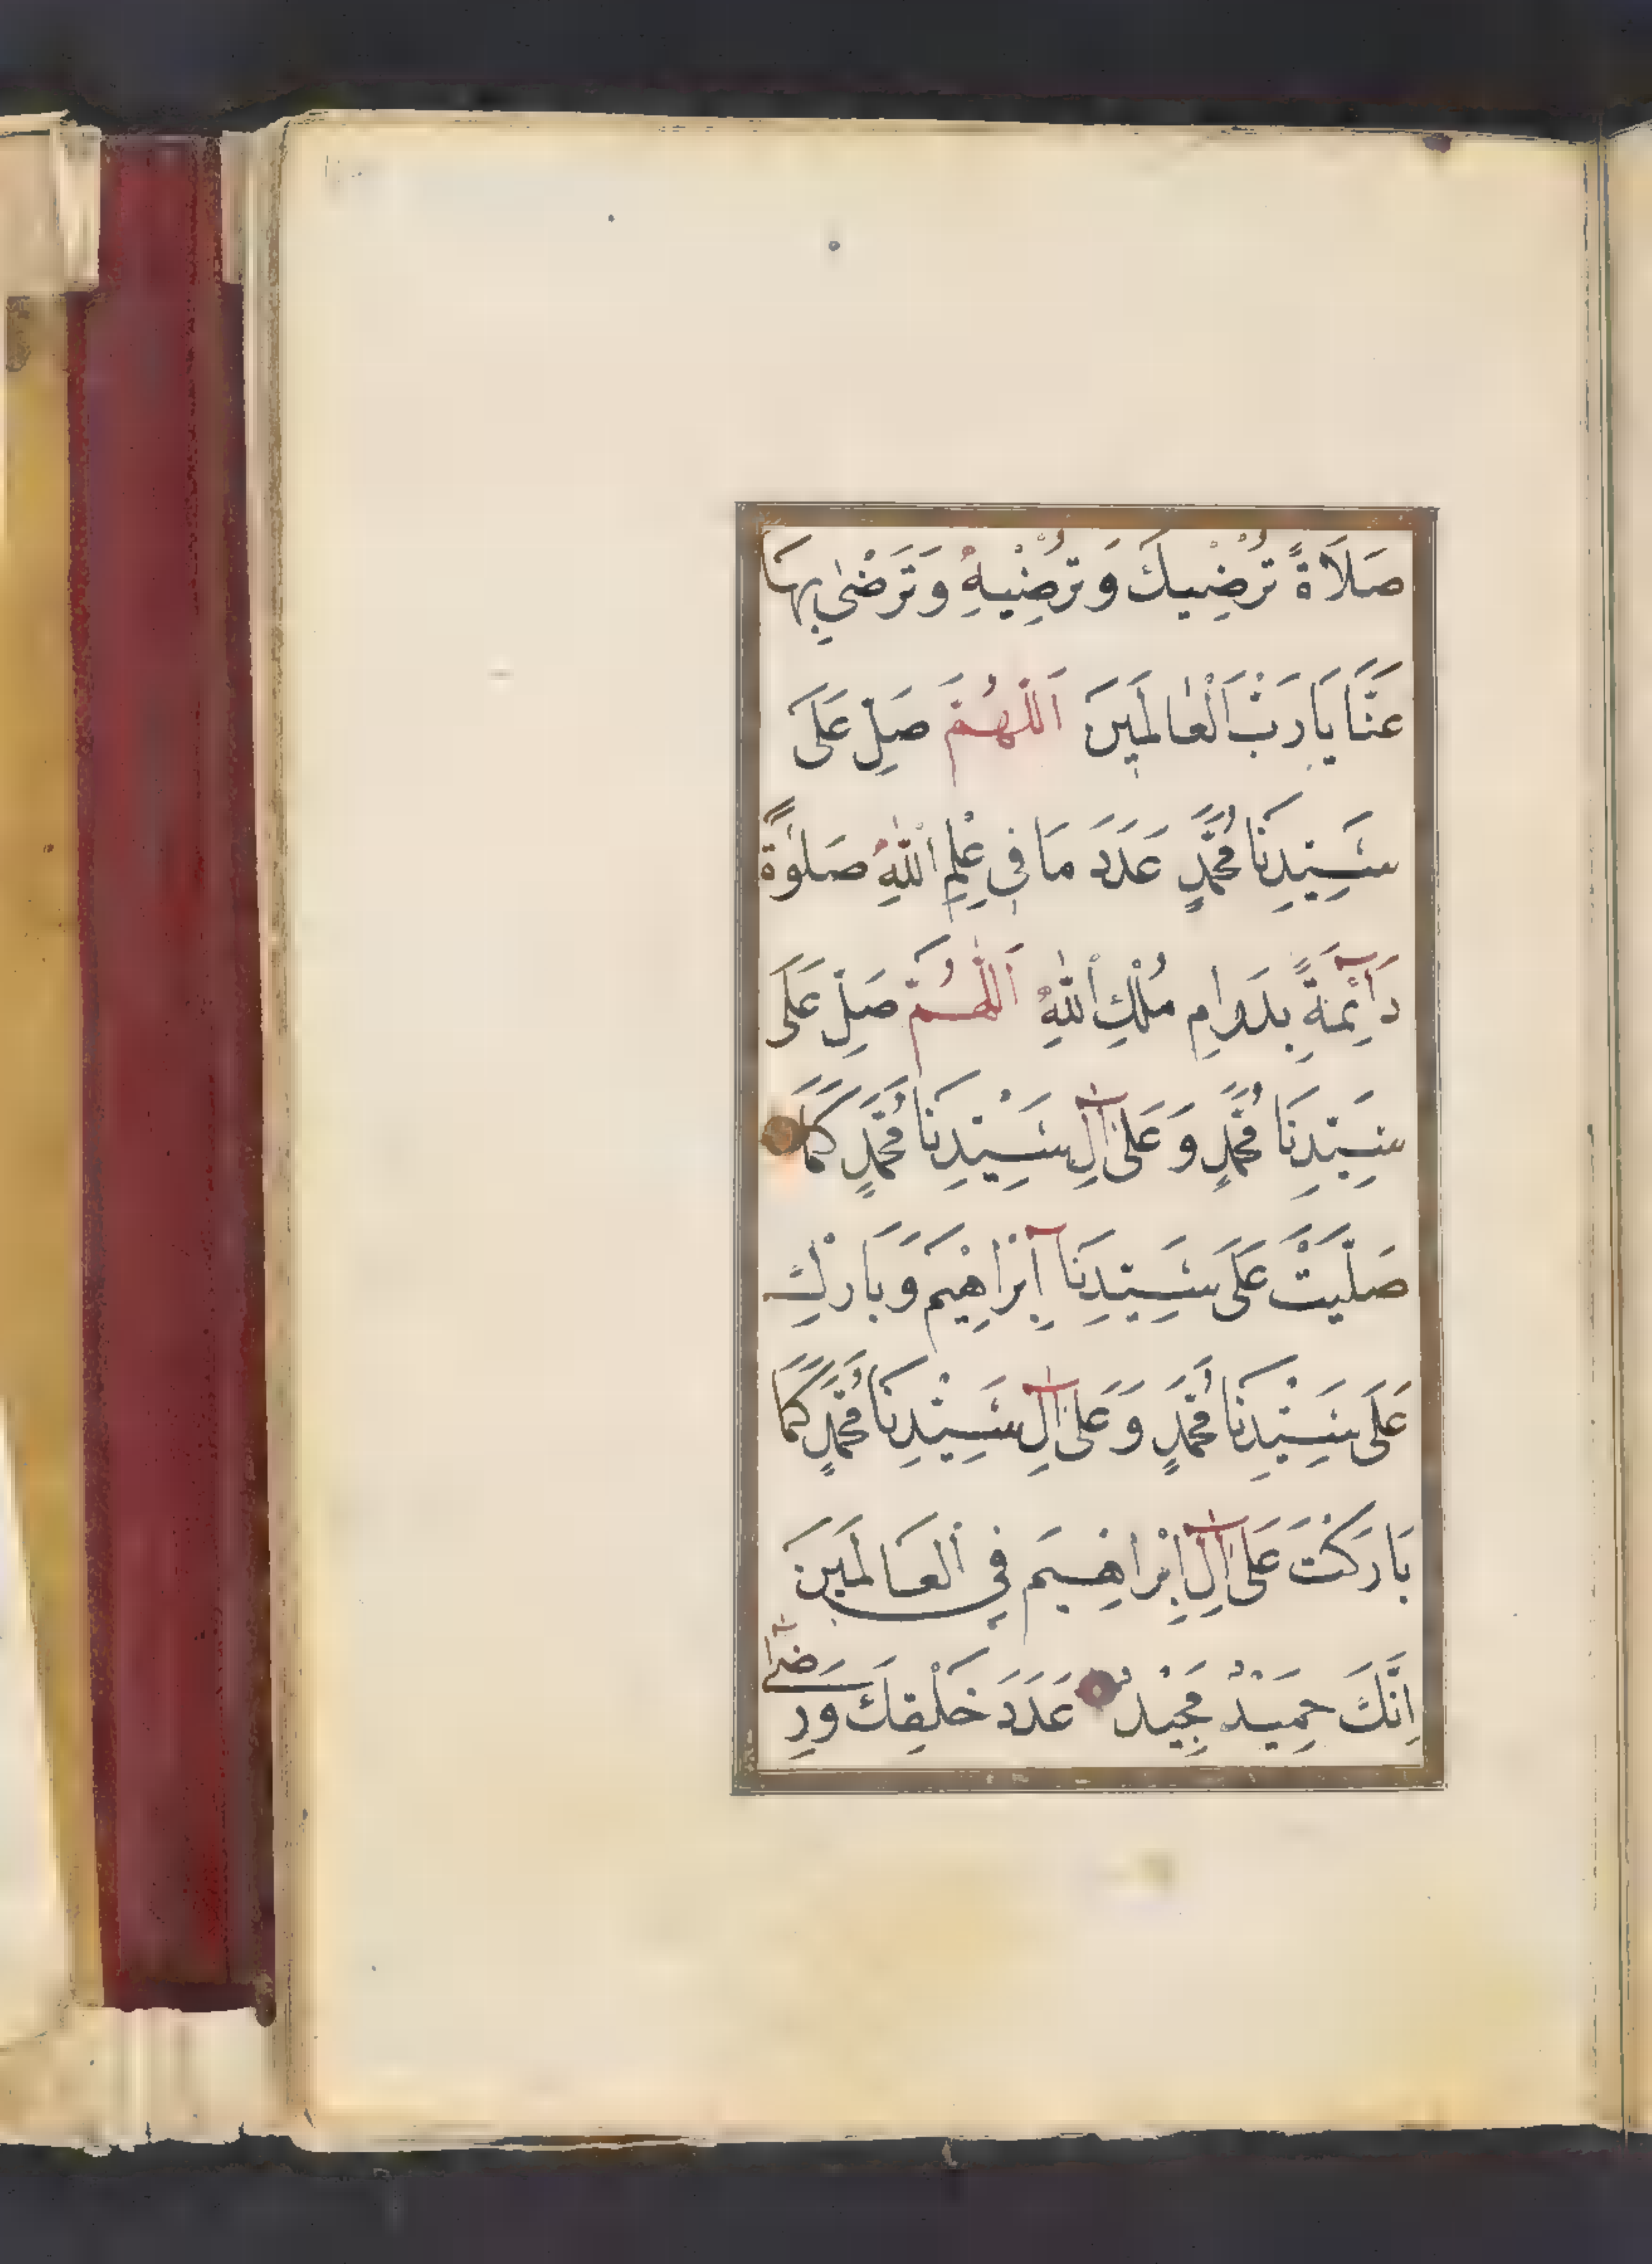 صَلَاةً تُرْضِيكَ وَتُرْضِيهِ وَتَرْضٰى بِهَا
عَنَّا يَا رَبَّ الْعَالَمِينَ اَللّٰهُمَّ صَلِّ عَلَى
سَيِّدِنَا مُحَمَّدٍ عَدَدَ مَا فِي عِلْمِ اللّٰهِ صَلٰوةً
دَآئِمَةً بِدَوَامِ مُلْكِ اللّٰهِ اَللّٰهُمَّ صَلِّ عَلَى
سَيِّدِنَا مُحَمَّدٍ وَعَلٰى اٰلِ سَيِّدِنَا مُحَمَّدٍ كَمَا
صَلَّيْتَ عَلَى سَيِّدِنَا اِبْرَاهِيْمَ وَبَارِكْ
عَلَى سَيِّدِنَا مُحَمَّدٍ وَعَلٰى اٰلِ سَيِّدِنَا مُحَمَّدٍ كَمَا
بَارَكْتَ عَلٰى اٰلِ اِبْرَاهِيمَ فِي الْعَالَمِينَ
اِنَّكَ حَمِيْدٌ مَجِيْدٌ عَدَدَ خَلْقِكَ وَرِضٰى